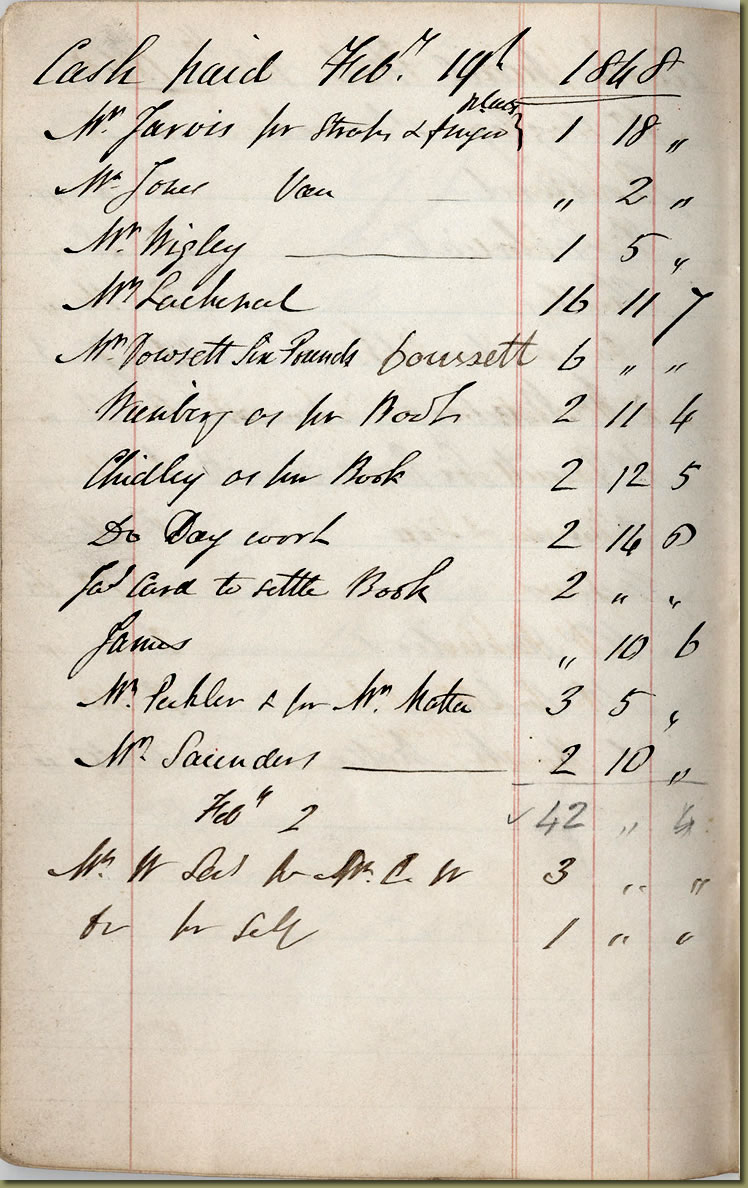 Cash paid Feby. 19th 1848
plates
Mr. Jarvis for Straps & finger 1 18 "
Mr. Jones Van — " 2 "
Mr. Wigley — 1 5 "
Mr. Lachenal 16 11 7
Mr. Dowsett Six Pounds Doussett 6 " "
Weinberg as per Book 2 11 4
Chidley as per Book 2 12 5
Do Day work 2 14 6
Jas Card to settle Book 2 " "
James " 10 6
Mr. Pechler & for Mr. 3 5 "
Mr. Saunders — 2 10 "
Feby 2 ✓ 42 " 4
Mr. W for Mr. C. W 3 " "
Do for Self 1 " "